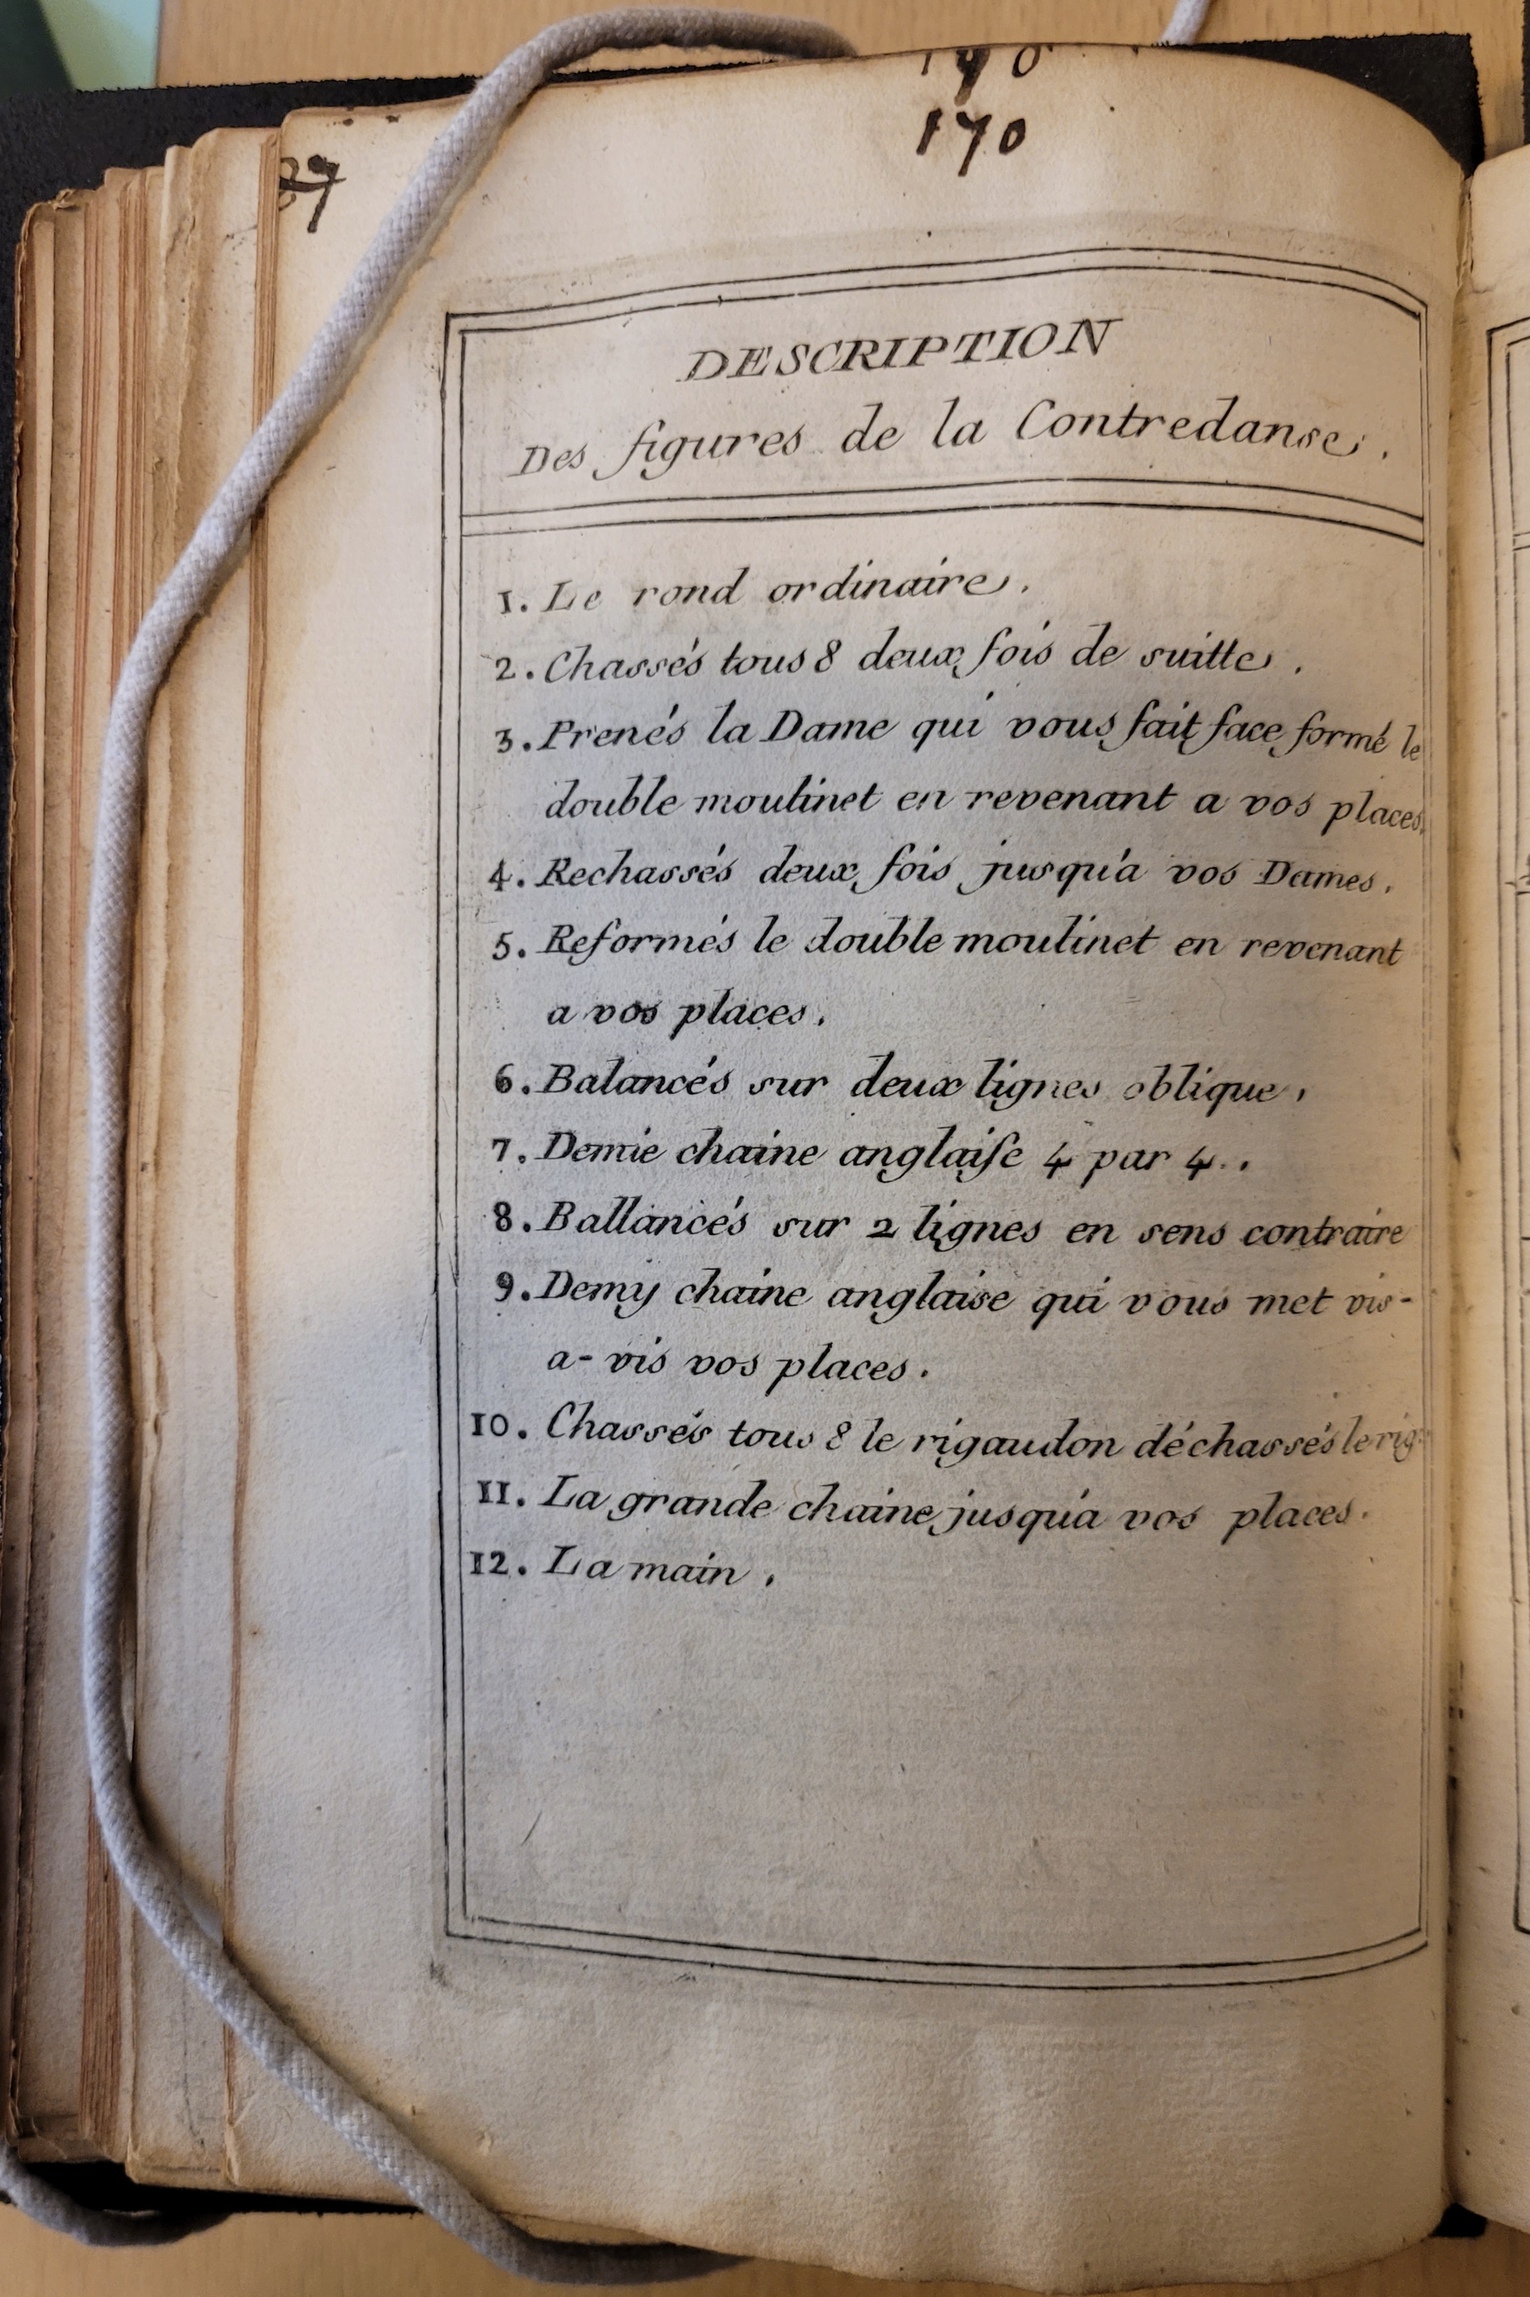 170
170
DESCRIPTION
Des figures de la Contredanse.
1. Le rond ordinaire.
2. Chassés tous 8 deux fois de suitte.
3. Prenés la Dame qui vous fait face formé le
double moulinet en revenant a vos places.
4. Rechassés deux fois jusqu'a vos Dames.
5. Reformés le double moulinet en revenant
a vos places.
6. Balancés sur deux lignes oblique.
7. Demie chaine anglaise 4 par 4.
8. Ballancés sur 2 lignes en sens contraire
9. Demy chaine anglaise qui vous met vis-
a-vis vos places.
10. Chassés tous 8 le rigaudon déchassés le rig.
11. La grande chaine jusqu'a vos places.
12. La main.